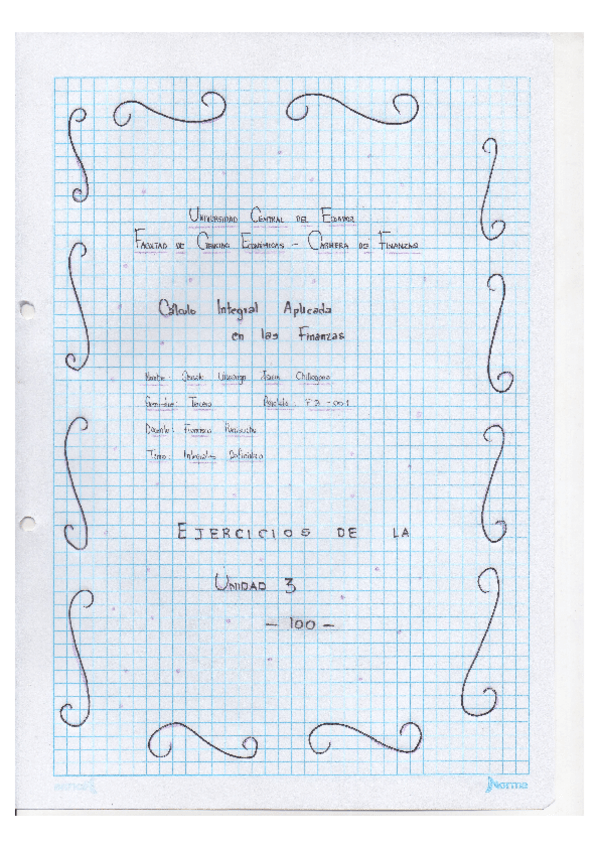 Universidad Central del Ecuador
Facultad de Ciencias Económicas - Carrera de Finanzas
Cálculo Integral Aplicada
en las Finanzas
Nombre:
Semestre: Tercero Paralelo: F3-001
Docente: Francisco
Tema: Integrales Definidas
EJERCICIOS DE LA
UNIDAD 3
- 100 -
Norma